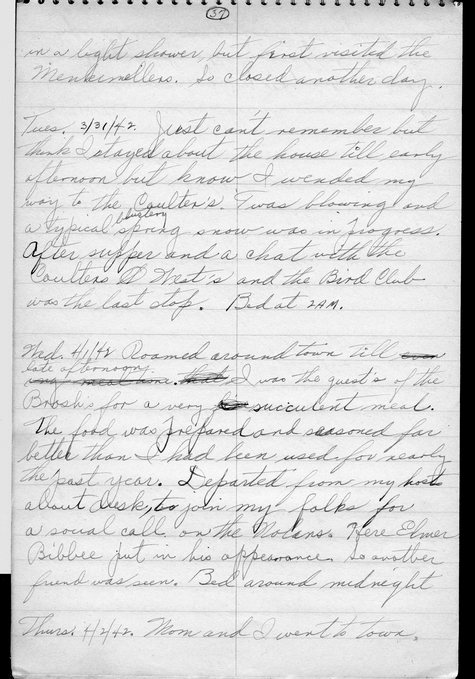 37
in a light shower, but first visited the
Menkemellers. So closed another day.
Tues. 3/31/42. Just can't remember but
think I stayed about the house till early
afternoon but know I wended my
way to the Coulter's. Twas blowing and
a typical blustery spring snow was in progress.
After supper and a chat with the
Coulters West's and the Bird Club
was the last stop. Bed at 2 AM.
Wed. 4/1/42 Roamed around town till
late afternoon.
I was the guest's of the
Brosh's for a very succulent meal.
The food was prepared and seasoned far
better than I had been used for nearly
the past year. Departed from my host
about dusk, to join my folks for
a social call on the Nolans. Here Elmer
Bibbee put in his appearance. So another
friend was seen. Bed around midneght
Thurs. 4/2/42. Mom and I went to town.